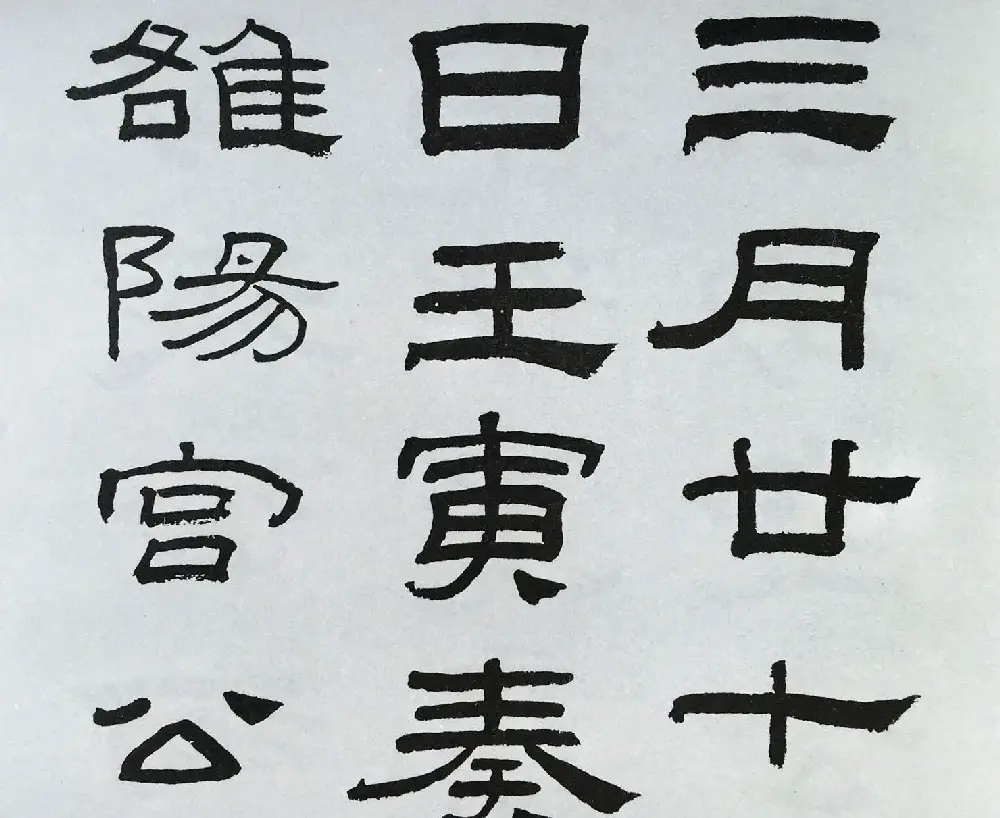 三月廿七
日壬寅奏
雒陽宫公